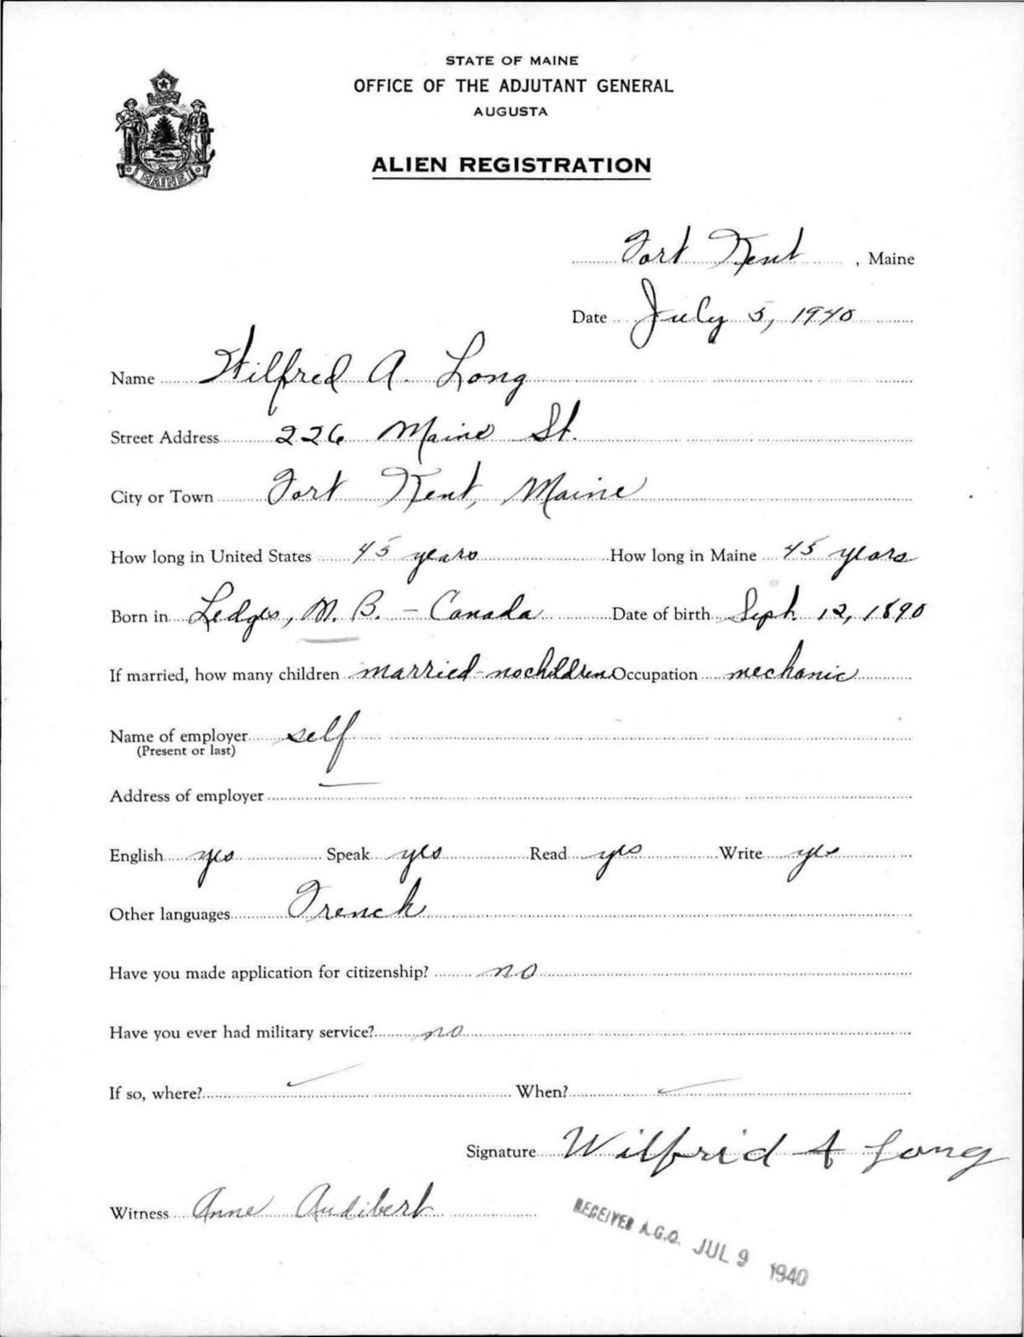 STATE OF MAINE
OFFICE OF THE ADJUTANT GENERAL
AUGUSTA
ALIEN REGISTRATION
MAINE
Fort Kent, Maine
Date July 5, 1940
Name Wilfred A. Long
Street Address 226 Maine St.
City or Town Fort Kent, Maine
How long in United States 45 years How long in Maine 45 years
Born in Ledges, N. B. - Canada Date of birth Sept. 12, 1890
If married, how many children married - no children Occupation mechanic
Name of employer self
(Present or last)
Address of employer —
English yes Speak yes Read yes Write yes
Other languages French
Have you made application for citizenship? no
Have you ever had military service? no
If so, where? When?
Signature Wilfrid A Long
Witness Anne Audibert
RECEIVED A.G.O. JUL 9 1940